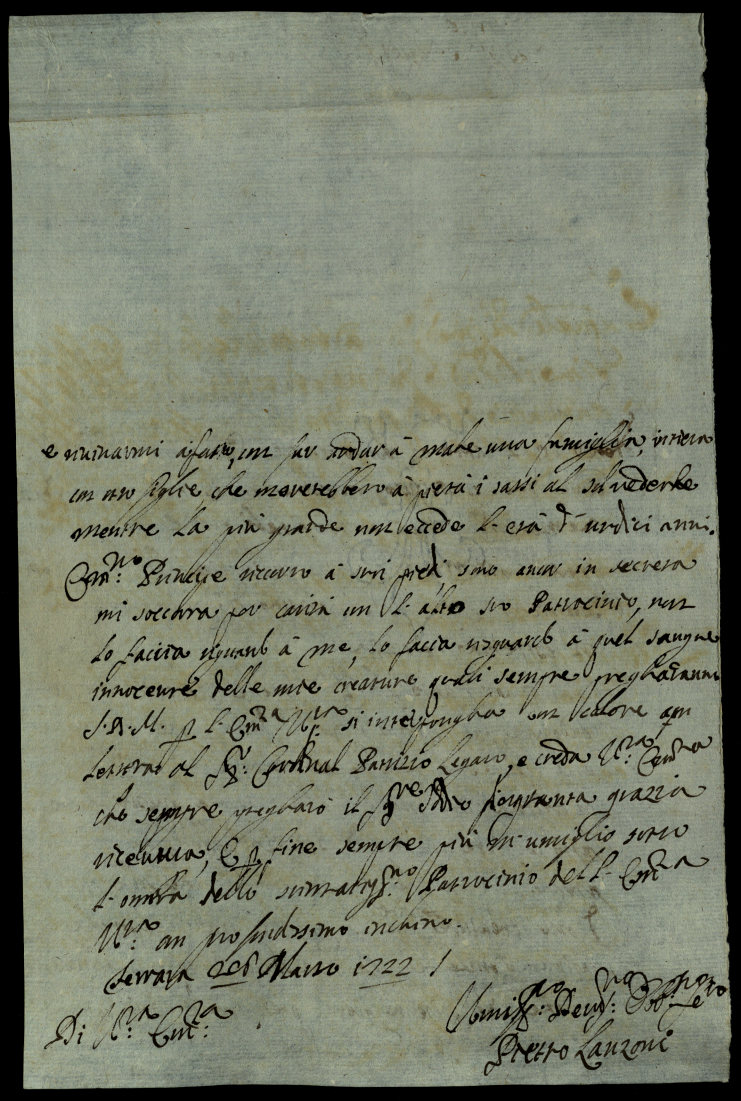 e ruinarmi afatto, con far andar à male una famiglia, intiera
con otto figlie che moverebbero à pietà i sassi al sol vederle
mentre la più grande non eccede l'età d'undici anni.
Em.mo Principe ricorro à suoi piedi, sono ancor in secreta
mi soccorra per carità con l'alto suo Patrocinio, non
lo faccia riguardo à me, lo faccia risguardo à quel sangue
innocente delle mie creature quali sempre pregharanno
S.D.M. p l'Em.za V.ra si interpongha con calore con
lettera al Sig.r Cardinal Patrizio Legato, e creda V.ra Em.za
che sempre pregharò il Sig.re Iddio p questa grazia
ricevuta, E p fine sempre più mi umiglio sotto
l'ombra dello stimatiss.mo Patrocinio dell'Em.za
V.ra con profundissimo inchino.
Ferrara Marzo 1722
Di V.ra Em.za
Umiliss.mo Devot.mo Obb.mo Ser.re
Pietro Lanzoni